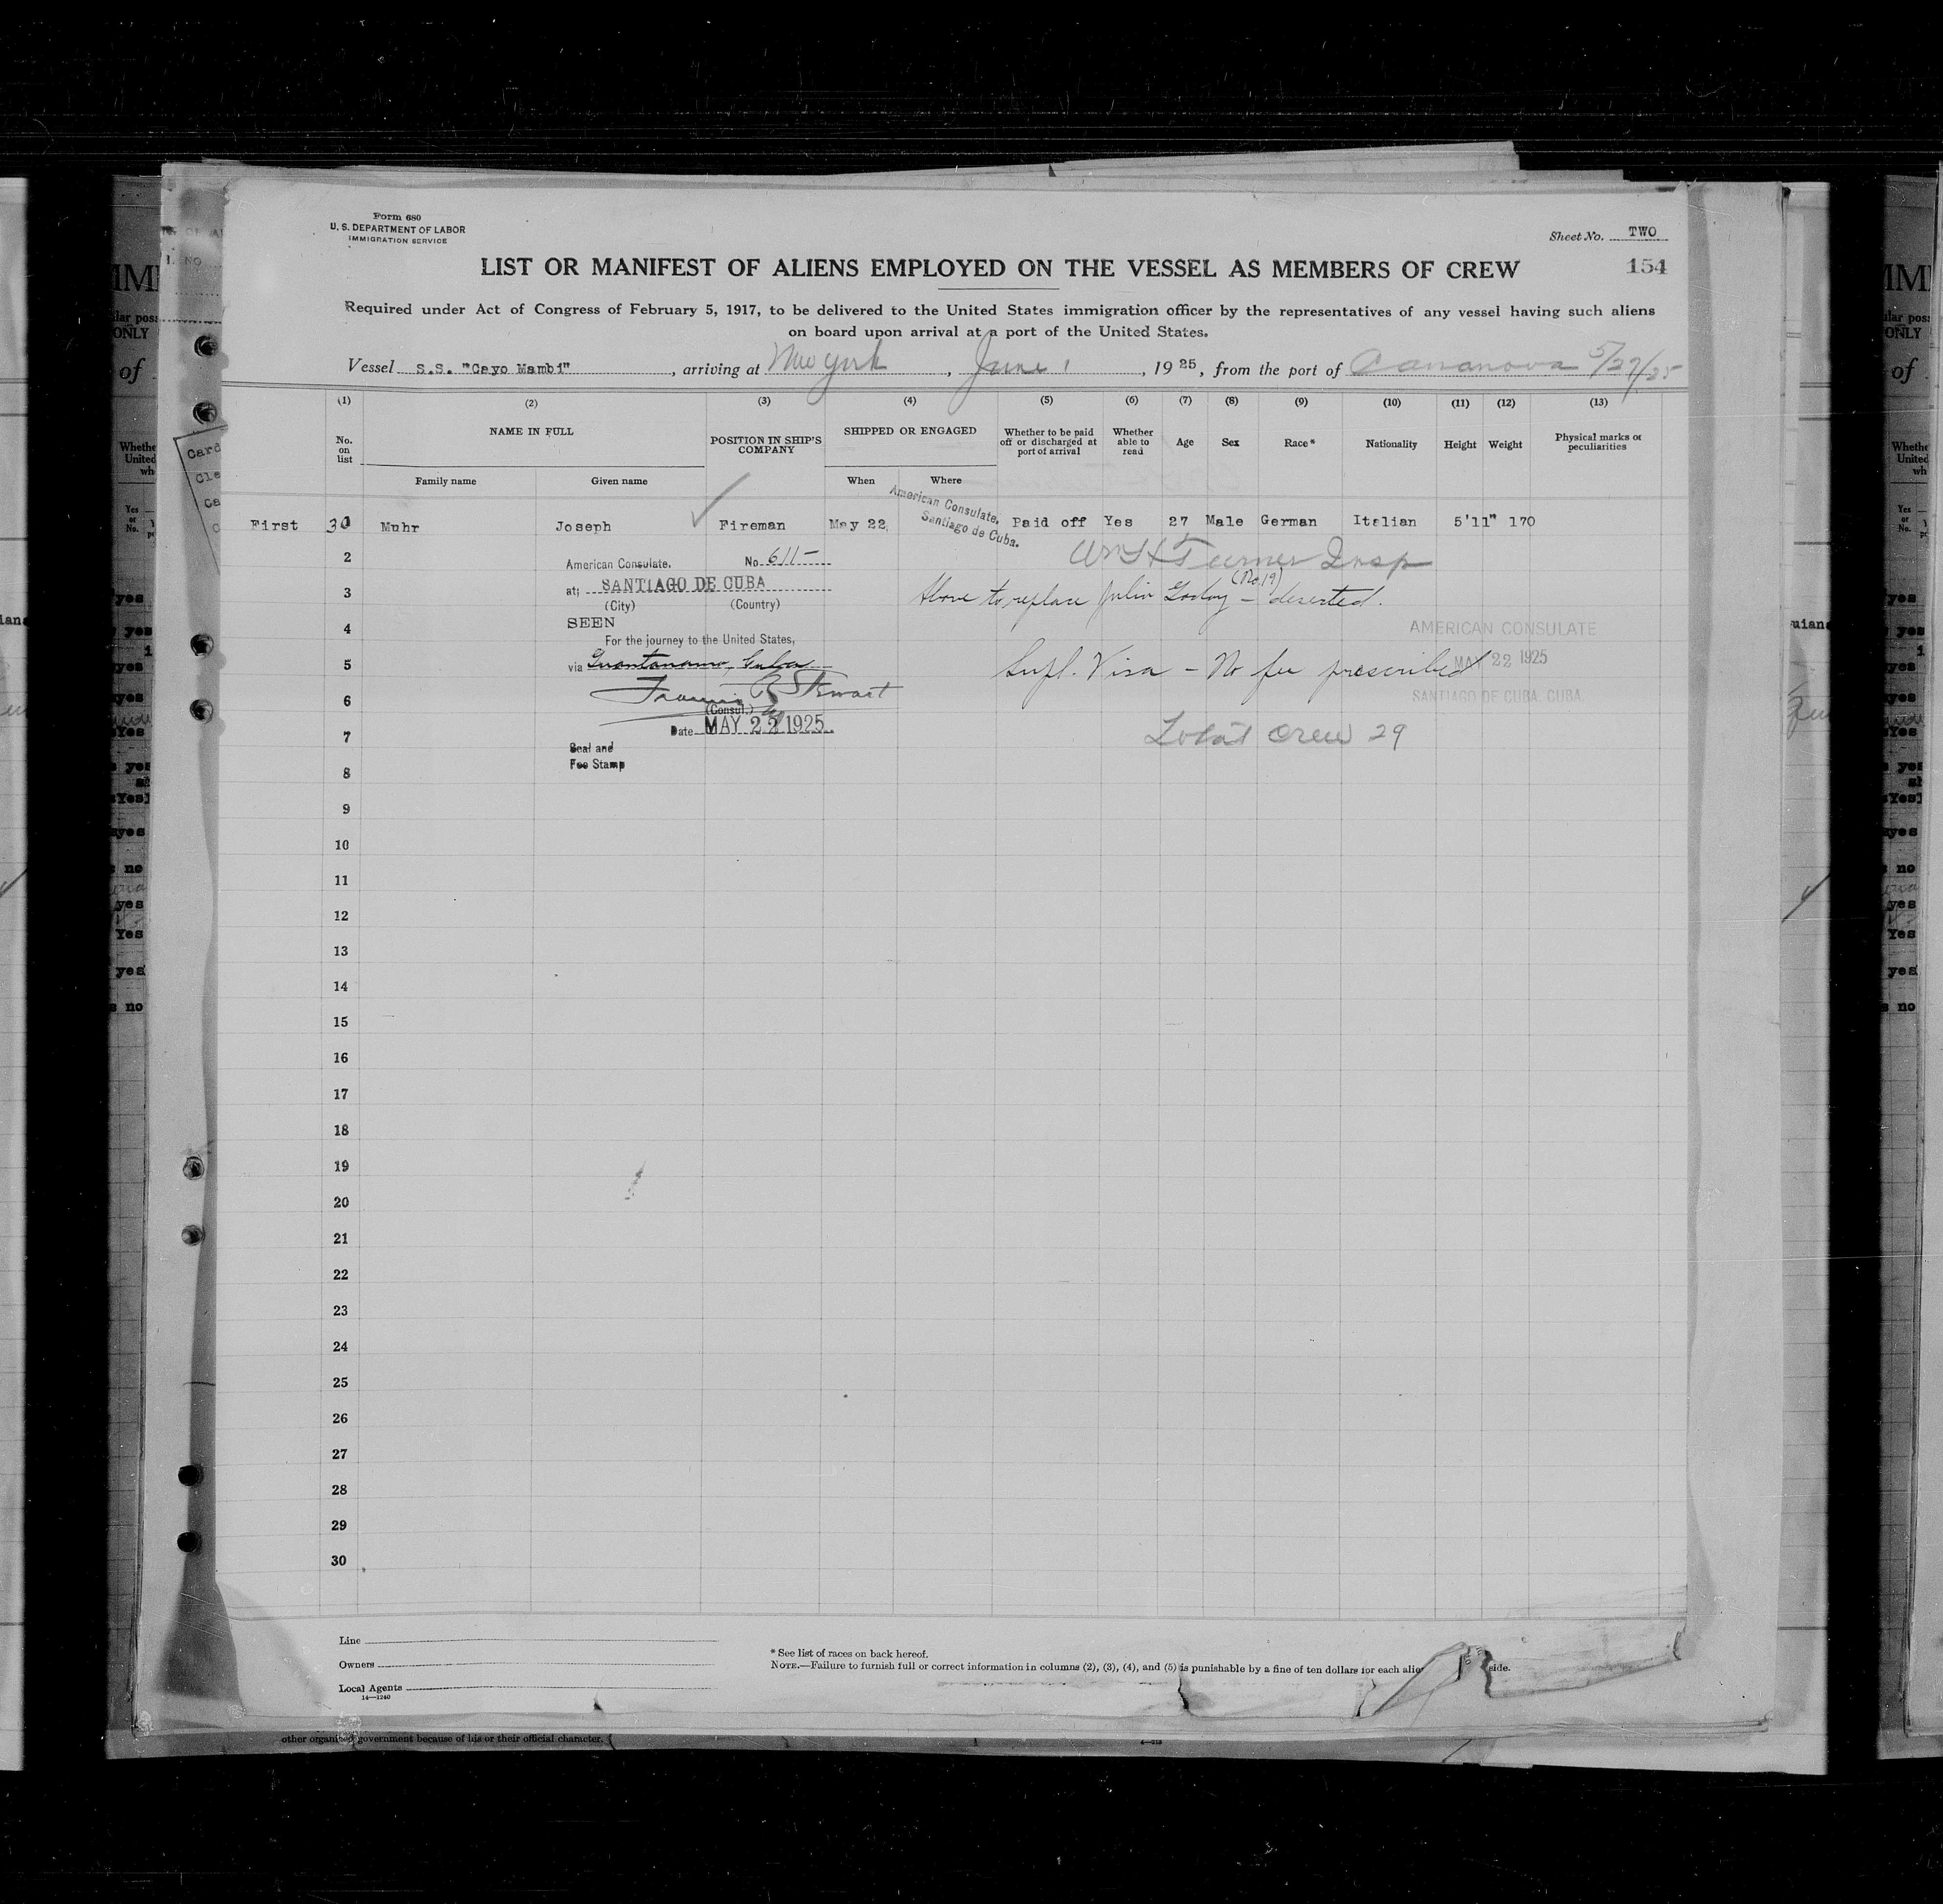 Form 680
U. S. DEPARTMENT OF LABOR
IMMIGRATION SERVICE
Sheet No. TWO
LIST OR MANIFEST OF ALIENS EMPLOYED ON THE VESSEL AS MEMBERS OF CREW
154
Required under Act of Congress of February 5, 1917, to be delivered to the United States immigration officer by the representatives of any vessel having such aliens
on board upon arrival at a port of the United States.
Vessel S.S. "Cayo Mambi", arriving at New York, June 1, 1925, from the port of Cananova 5/27/25
(1) (2) (3) (4) (5) (6) (7) (8) (9) (10) (11) (12) (13)
No. on list
NAME IN FULL
Family name
Given name
POSITION IN SHIP'S COMPANY
SHIPPED OR ENGAGED
When
Where
Whether to be paid off or discharged at port of arrival
Whether able to read
Age
Sex
Race*
Nationality
Height
Weight
Physical marks or peculiarities
First 30 Muhr Joseph Fireman May 22, American Consulate, Santiago de Cuba. Paid off Yes 27 Male German Italian 5'11" 170
2
Wm H Turner Insp
American Consulate. No. 611-
at; SANTIAGO DE CUBA
(City) (Country)
3
Above to replace Julio Godoy - (No 19) deserted.
SEEN
4
AMERICAN CONSULATE
For the journey to the United States,
via Guantanamo, Cuba
5
Supl. Visa - No fee prescribed
MAY 22 1925
Francis R Stewart
(Consul.)
6
SANTIAGO DE CUBA, CUBA.
Date MAY 22 1925
7
Total Crew 29
Seal and
Fee Stamp
8
9
10
11
12
13
14
15
16
17
18
19
20
21
22
23
24
25
26
27
28
29
30
Line
Owners
Local Agents
14—1240
* See list of races on back hereof.
NOTE.—Failure to furnish full or correct information in columns (2), (3), (4), and (5) is punishable by a fine of ten dollars for each side.
other organized government because of his or their official character.